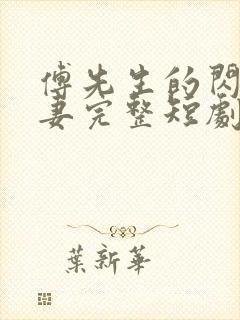 傅先生的閃
妻完整短劇
葉新華